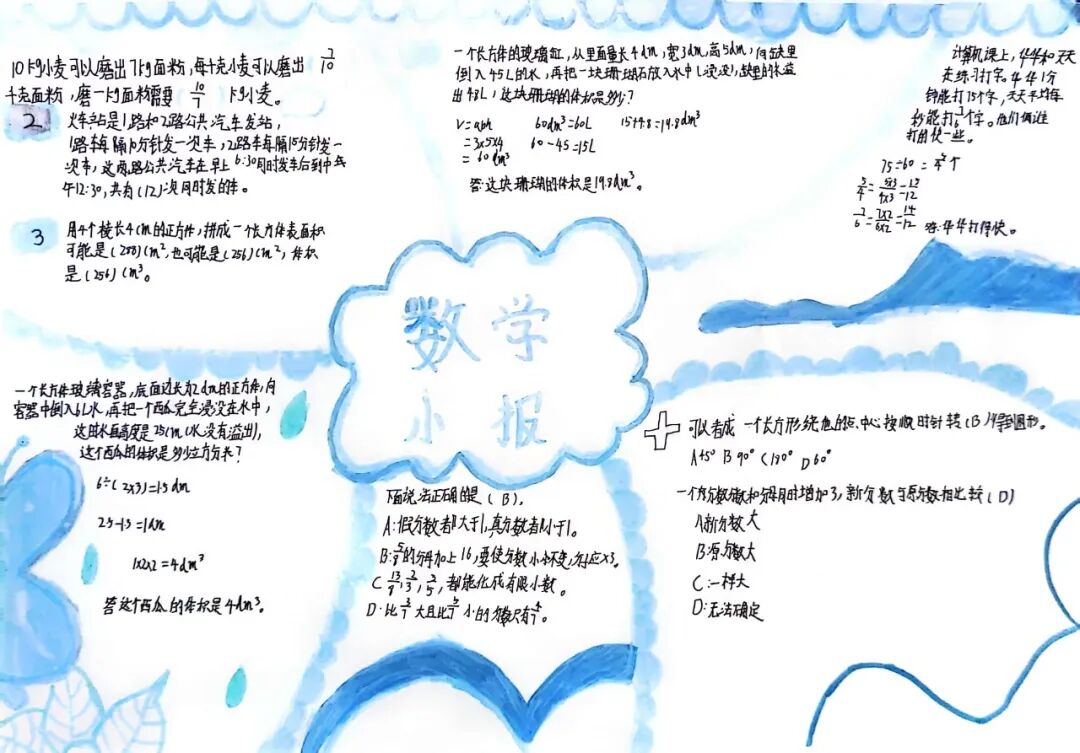 10kg小麦可以磨出7kg面粉,每千克小麦可以磨出 7/10
千克面粉,磨一kg面粉需要 10/7 kg小麦。
2 火车站是1路和2路公共汽车发站,
1路车每隔10分钟发一次车,2路车每隔15分钟发一
次车,这两路公共汽车在早上6:30同时发车后到中午
午12:30,共有(12)次同时发的车。
3 用4个棱长4cm的正方体,拼成一个长方体表面积
可能是(288)cm²,也可能是(256)cm²,体积
是(256)cm³。
一个长方体的玻璃缸,从里面量长4dm,宽3dm,高5dm,向缸里
倒入45L的水,再把一块珊瑚石放入水中(浸没),缸里的水溢
出4.8L,这块珊瑚的体积是多少?
V=abh 60dm³=60L 15+4.8=19.8dm³
=3×5×4 60-45=15L
=60dm³
答:这块珊瑚的体积是19.8dm³。
计算机课上,华华和天天
去练习打字。华华1分
钟能打75个字,天天平均每
秒能打7/6个字。他们俩谁
打的快一些。
75÷60=
5/4=5×3/4×3=15/12
7/6=7×2/6×2=14/12
答:华华打得快。
数学
小报
一个长方体玻璃容器,底面边长为2dm的正方体,向
容器中倒入6L水,再把一个西瓜完全浸没在水中,
这时水面高度是25cm(水没有溢出),
这个西瓜的体积是多少立方分米?
6÷(2×3)=1.5dm
2.5-1.5=1dm
1×2×2=4dm³
答这个西瓜的体积是4dm³。
下面说法正确的是(B)。
A:假分数都大于1,真分数都小于1。
B:5/8的分母加上16,要使分数大小不变,分子应×3。
C 13/9,2/3,2/5,都能化成有限小数。
D:比3/7大且比5/7小的分数只有4/7。
可以看成一个长方形绕它的中心按顺时针转(B)得到图形。
A45° B90° C180° D60°
一个分数分子和分母同时增加了3,新分数与原分数相比较(D)
A新分数大
B原分数大
C:一样大
D:无法确定